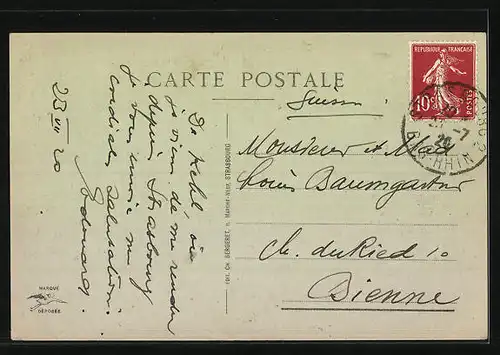 CARTE POSTALE
REPUBLIQUE FRANÇAISE
10c
POSTES
BAS-RHIN
Suisse
Monsieur et Mad
Louis Baumgartner
Ch. du Ried 10
Bienne
De Kehl, où
je viens de me rendre
depuis Strasbourg
je vous envoie mes
cordiales salutations.
Edouard.
23 VII 20
EDIT. CH. BERGERET, 11, MARCHÉ-NEUF, STRASBOURG
MARQUE
DÉPOSÉE